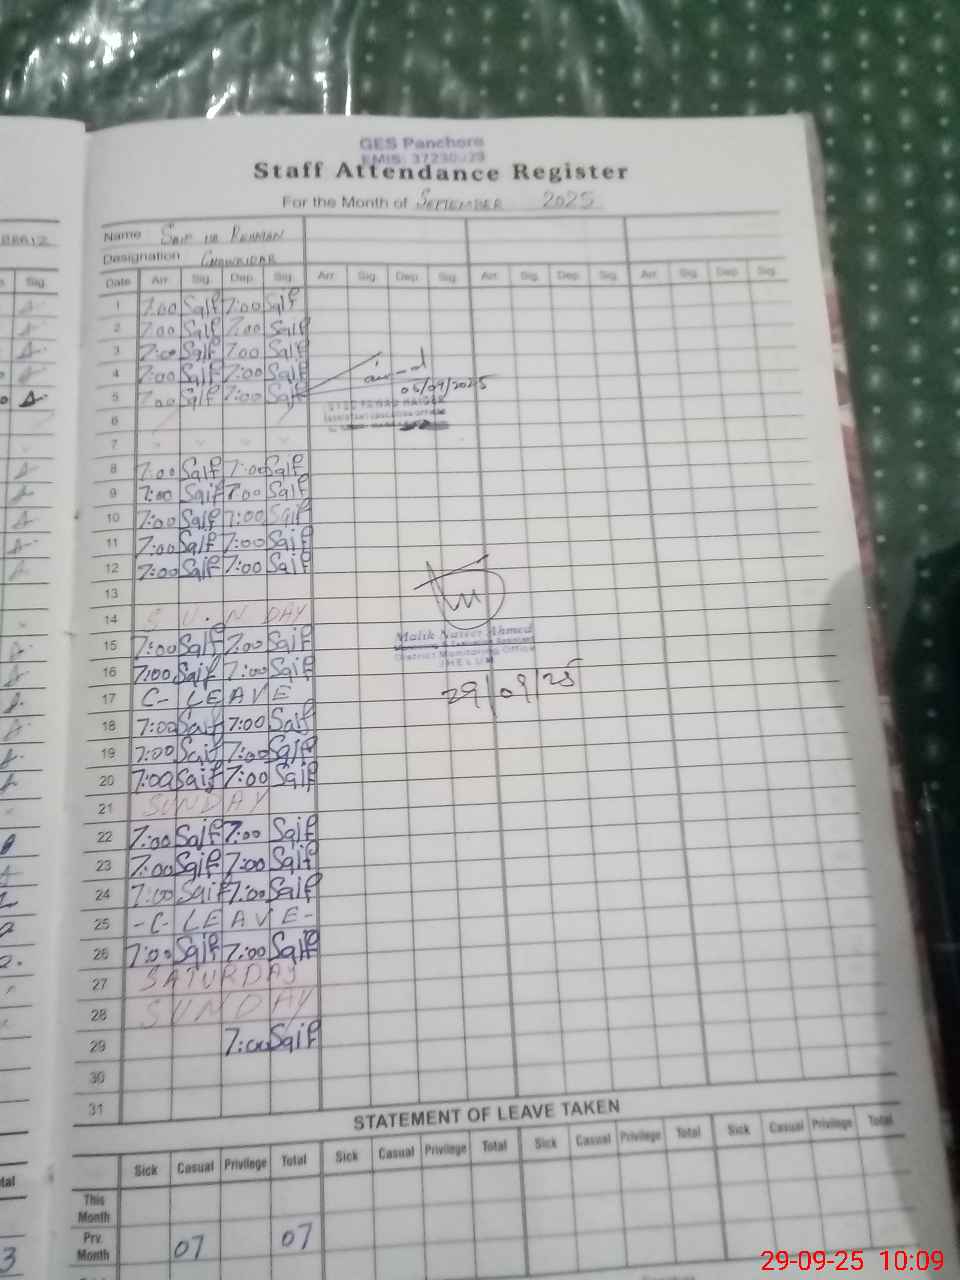 GES Panchore
Staff Attendance Register
For the Month of SEPTEMBER 2025
Name SAIF UR REHMAN
Designation CHOWKIDAR
Date Arr. Sig. Dep. Sig. Arr. Sig. Dep. Sig. Arr. Sig. Dep. Sig. Arr. Sig. Dep. Sig.
1 7:00 Saif 7:00 Saif
2 7:00 Saif 7:00 Saif
3 7:00 Saif 7:00 Saif
4 7:00 Saif 7:00 Saif
5 7:00 Saif 7:00 Saif
05/09/2025
6
7
8 7:00 Saif 7:00 Saif
9 7:00 Saif 7:00 Saif
10 7:00 Saif 7:00 Saif
11 7:00 Saif 7:00 Saif
12 7:00 Saif 7:00 Saif
13
14 SUNDAY
15 7:00 Saif 7:00 Saif
Malik Naseer Ahmed
District Monitoring Office
JHELUM
16 7:00 Saif 7:00 Saif
17 C- LEAVE
29/09/25
18 7:00 Saif 7:00 Saif
19 7:00 Saif 7:00 Saif
20 7:00 Saif 7:00 Saif
21 SUNDAY
22 7:00 Saif 7:00 Saif
23 7:00 Saif 7:00 Saif
24 7:00 Saif 7:00 Saif
25 -C- LEAVE-
26 7:00 Saif 7:00 Saif
27 SATURDAY
28 SUNDAY
29 7:00 Saif
30
31
STATEMENT OF LEAVE TAKEN
Sick Casual Privilege Total Sick Casual Privilege Total Sick Casual Privilege Total Sick Casual Privilege Total
This Month
Prv. Month 07 07
29-09-25 10:09